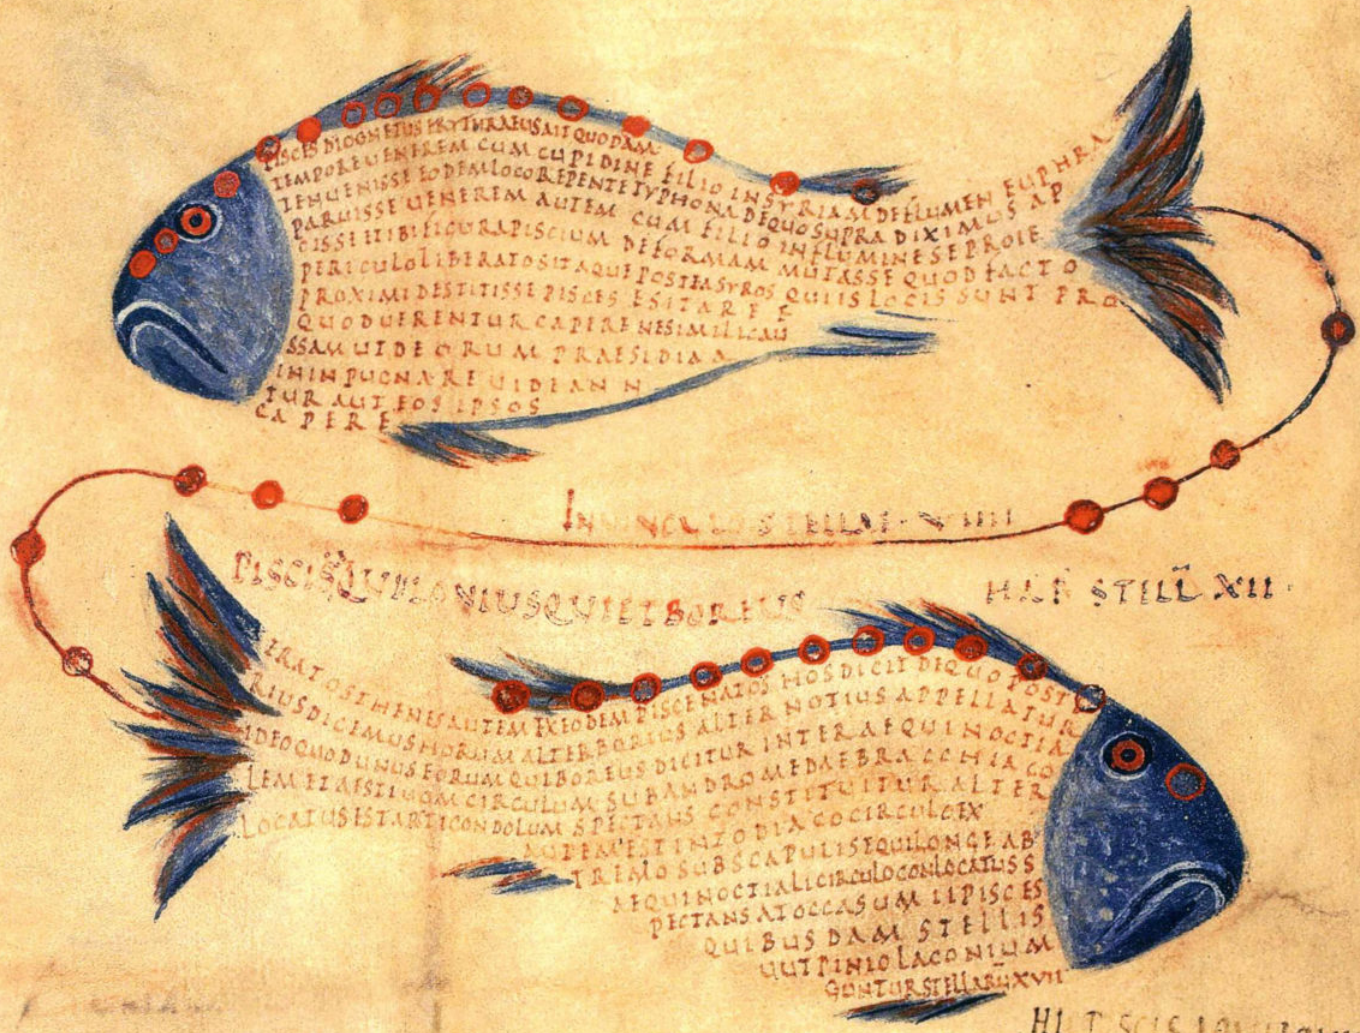 PISCES DIOGNETUS ERYTHRAEUS AIT QUODAM
TEMPORE UENEREM CUM CUPIDINE FILIO IN SYRIAM DE FLUMEN EUPHRA
TENUENISSE EODEM LOCO REPENTE TYPHONA DE QUO SUPRA DIXIMUS AP
PARUISSE UENEREM AUTEM CUM FILIO IN FLUMINE SE PROIE
CISSE ET IBI FIGURA PISCIUM DEFORMAM MUTASSE QUOD FACTO
PERICULO LIBERATOS ITAQUE POSTEA SYROS QUI IIS LOCIS SUNT PRO
PROXIMI DESTITISSE PISCES ESITARE E
QUOD UERENTUR CAPERE NE SIMILI CAU
SSAM UIDEORUM PRAESIDIA A
ININPUGNARE UIDEAN N
TUR AUT EOS IPSOS
CAPERE
STELLAE VIIII
PISCIS AQUILONIUS QUI ET BOREUS
HAB STELL XII.
ERATOSTHENES AUTEM EX EO DEM PISCE NATOS HOS DICIT DE QUO POST
RIUS DICEMUS HORUM ALTER BORIUS ALTER NOTIUS APPELLATUR
IDEO QUOD UNUS EORUM QUI BOREUS DICITUR INTER AEQUINOCTIA
LEM ET AESTIUOM CIRCULUM SUB ANDROMEDAE BRACCHIA CO
LOCATUS EST ARTICON DOLUM SPECTANS CONSTITUITUR ALTER
AUTEM EST IN ZODIACO CIRCULO EX
TREMO SUB SCAPULIS EQUI LONGE AB
AEQUINOCTIALI CIRCULO CONLOCATUS S
PECTANS AT OCCASUM II PISCES
QUIBUSDAM STELLIS
UUTPINIOLACONIUM
GUNTUR STELLARU XVII
HI PISCIS